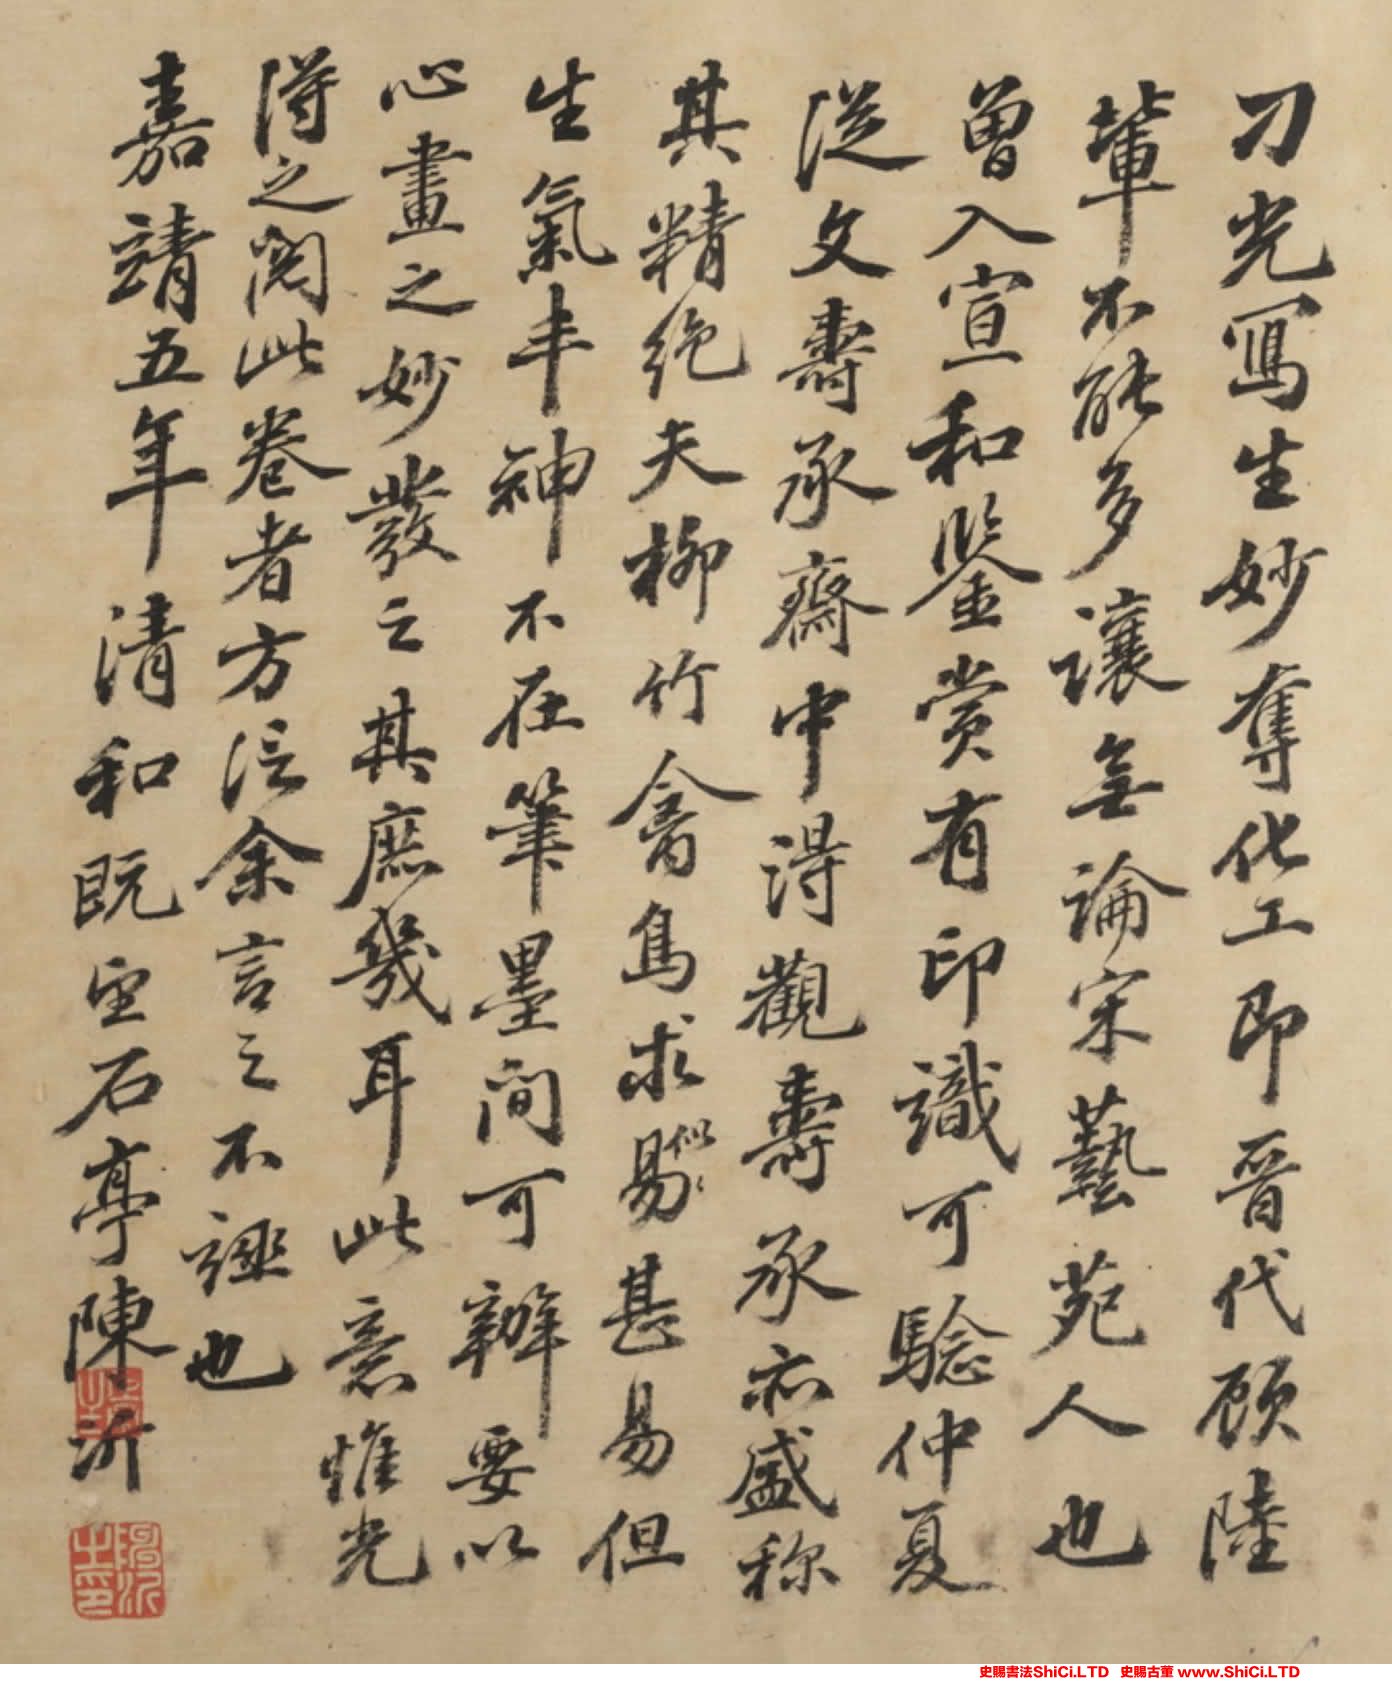 刀光寫生妙奪化工即晋代顧陸
輩不能多讓無論宋藝苑人也
曾入宣和鑒賞有印識可驗仲夏
従文壽承齋中得觀壽承亦盛称
其精絶夫柳竹禽鳥求易似甚易但
生氣丰神不在筆墨間可辦要以
心畫之妙發之其庶幾耳此意惟光
得之閱此卷者方信余言之不誣也
嘉靖五年清和既望石亭陳沂
史賜書法ShiCi.LTD 史賜古董 www.ShiCi.LTD